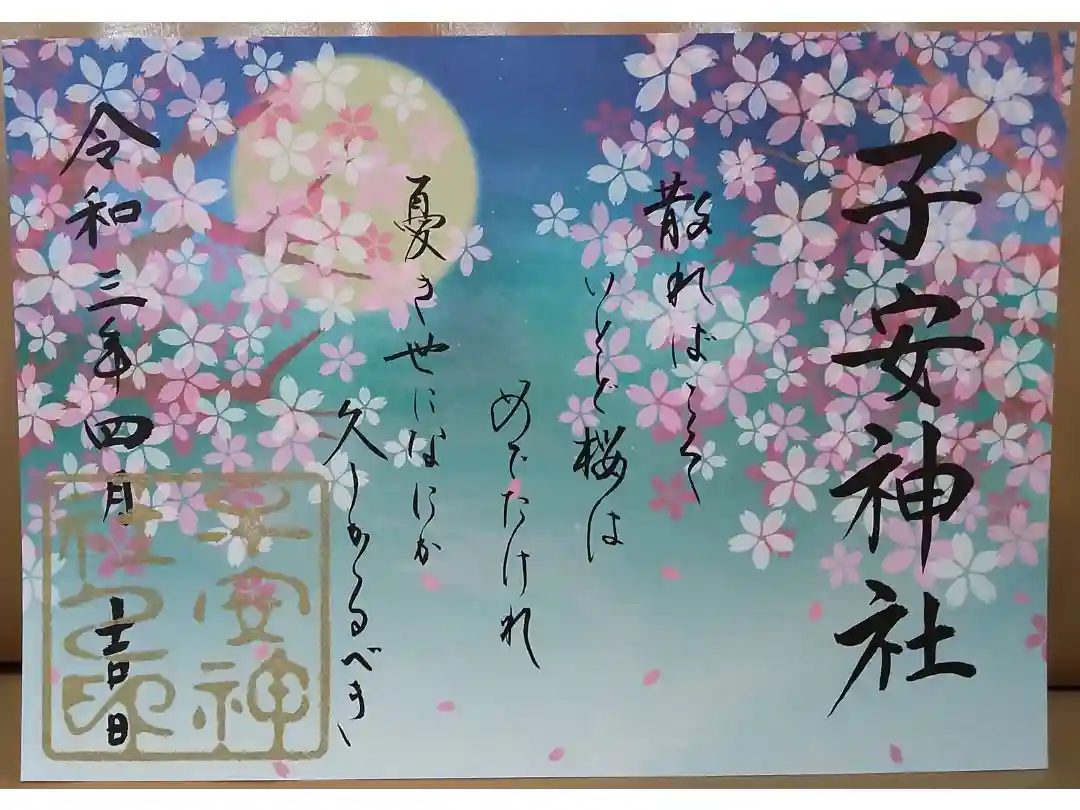 子安神社
散ればこそ
いとど桜は
めでたけれ
憂き世になにか
久しかるべき
令和三年四月吉日
子安神
社之印